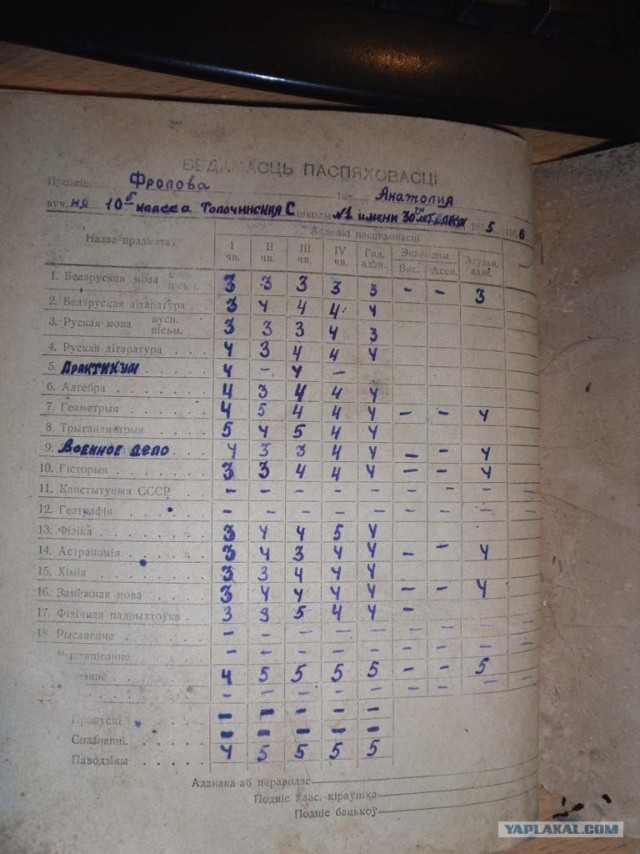 ВЕДАМАСЦЬ ПАСПЯХОВАСЦІ
Фролова Анатолия
вуч. ня 10 класса Толочинская С школы №1 имени 30 195 5 195 6
Назва прадмета Адзнакі паспяховасці
I чв. II чв. III чв. IV чв. Гад. адзн. Экзамены Вис. Асен. Агульн. адзн.
1. Беларуская мова вусн. пісьм. 3 3 3 3 3 – – 3
2. Беларуская літаратура 3 4 4 4 4
3. Руская мова вусн. пісьм. 3 3 3 4 3
4. Руская літаратура 4 3 4 4 4
5. Практикум 4 – 4 –
6. Алгебра 4 3 4 4 4
7. Геаметрыя 4 5 4 4 4 – – 4
8. Трыганаметрыя 5 4 5 4 4
9. Военное дело 4 3 3 4 4 – – 4
10. Гісторыя 3 3 4 4 4 – – 4
11. Канстытуцыя СССР – – – – – – – –
12. Геаграфія – – – – – – – –
13. Фізіка 3 4 4 5 4
14. Астраномія 3 4 3 4 4 – – 4
15. Хімія 3 3 4 4 4
16. Замежная мова 3 4 4 4 4 – – 4
17. Фізічная падрыхтоўка 3 3 5 4 4 –
18. Рысаванне – – – – – – – –
4 5 5 5 5 – – 5
– – – – – – – –
Пропускі – – – – –
Спазненні – – – – –
Паводзіны 4 5 5 5 5
Адзнака аб пераводзе
Подпіс ўлас. кіраўніка
Подпіс бацькоў
YAPLAKAL.COM